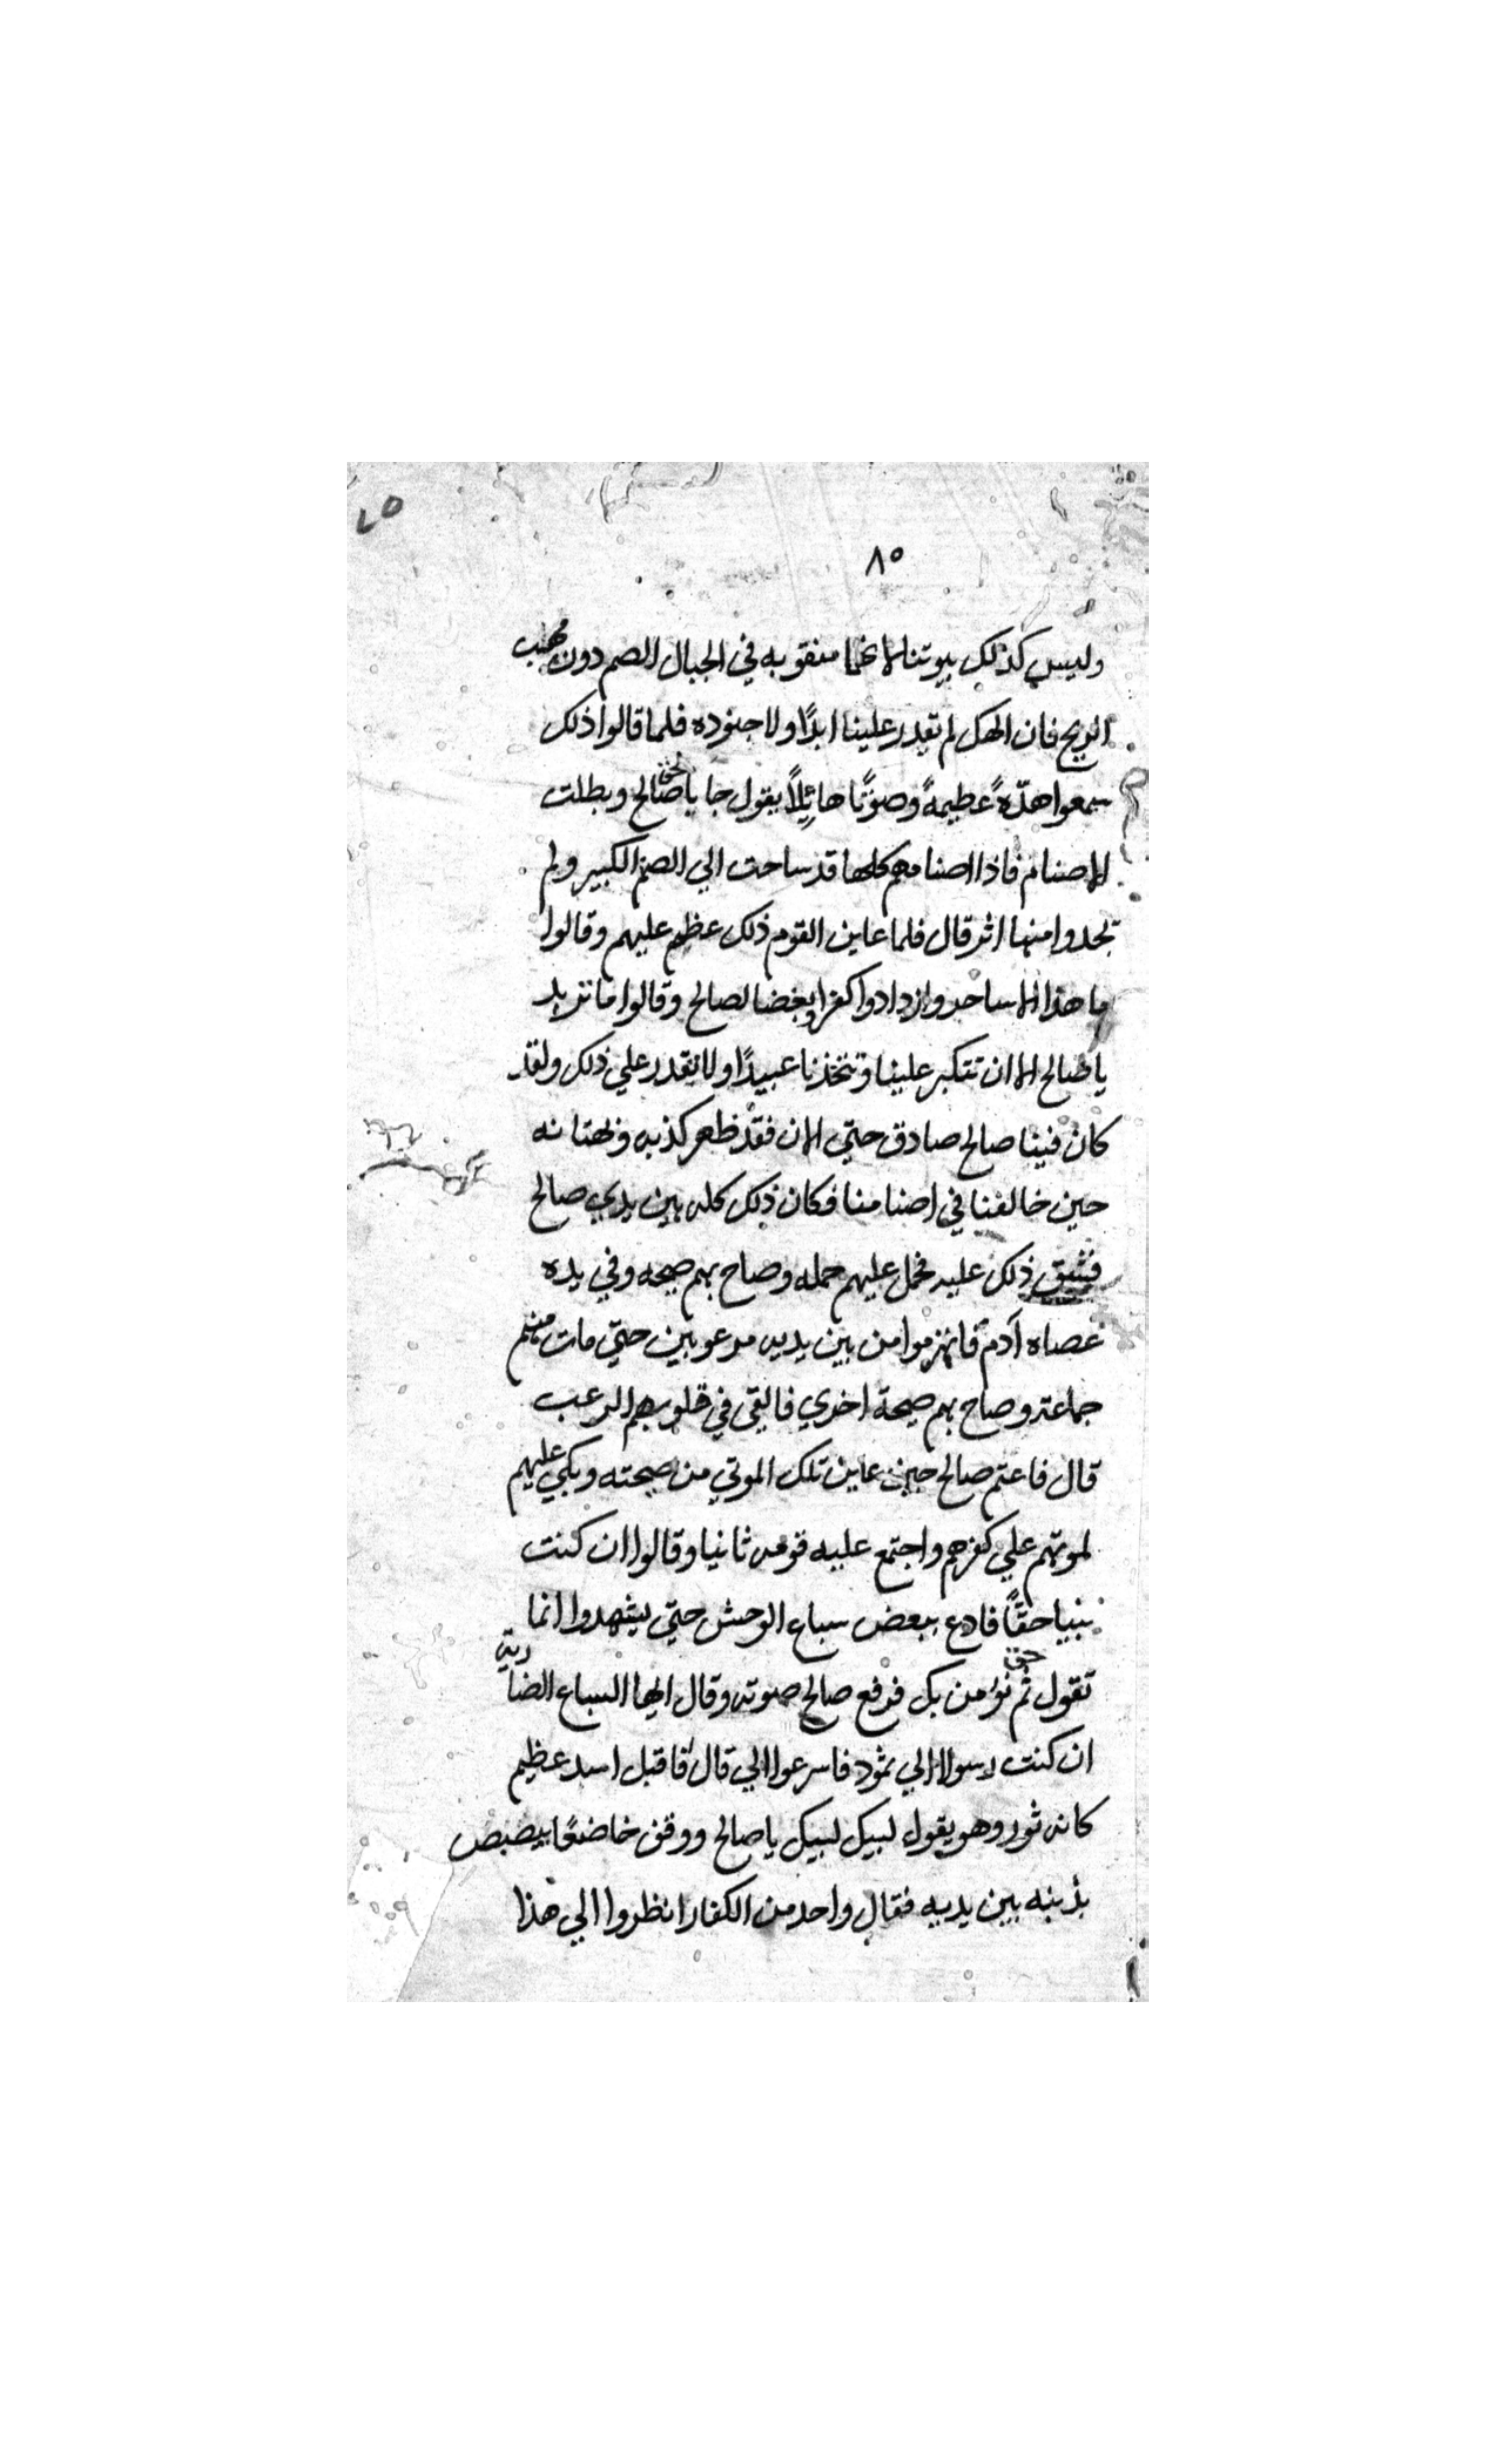 ٨٥
وليس كذلك بيوتنا لانها منقوبه في الجبال الصم دون مهب
الريح فان الهك لم يقدر علينا ابدًا ولا جنوده فلما قالوا ذلك
سمعوا هدّةً عظيمةً وصوتًا هائلًا يقول جا الحق يا صالح وبطلت
الاصنام فاذا اصنامهم كلها قد ساحت الي الصنم الكبير ولم
تجدوا منها اثر قال فلما عاين القوم ذلك عظم عليهم وقالوا
ما هذا الا ساحر وازدادوا كفرا وبغضا لصالح وقالوا ما تريد
يا صالح الا ان تتكبر علينا وتتخذنا عبيدًا ولا تقدر علي ذلك ولقد
كان فينا صالح صادق حتي الان فقد ظهر كذبه وبهتانه
حين خالفنا في اصنامنا فكان ذلك كله بين يدي صالح
فشق ذلك عليه فحمل عليهم حمله وصاح بهم صيحه وفي يده
عصاه آدم فانهزموا من بين يديه مرعوبين حتي مات منهم
جماعة وصاح بهم صيحة اخري فالقي في قلوبهم الرعب
قال فاغتم صالح حين عاين تلك الموتي من صيحته وبكي عليهم
لموتهم علي كفرهم واجتمع عليه قومه ثانيا وقالوا ان كنت
نبيا حقًا فادع ببعض سباع الوحش حتي يشهدوا انما
تقول حق ثم نؤمن بك فرفع صالح صوته وقال ايها السباع الضارية
ان كنت رسولا الي ثمود فاسرعوا الي قال فاقبل اسد عظيم
كانه ثور وهو يقول لبيك لبيك يا صالح ووقف خاضعًا يبصبص
بذنبه بين يديه فقال واحد من الكفار انظروا الي هذا